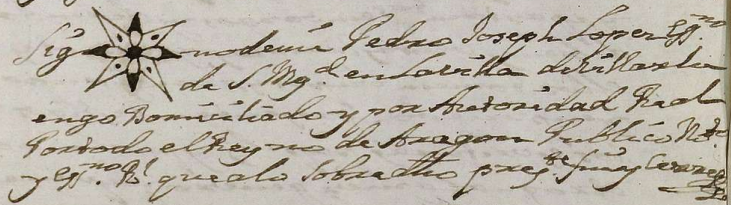 Sig no de mi Pedro Joseph Lopez Ess.no
de S. Mg.d en la villa de Villarlu
engo Domiciliado y por Autoridad Real
Por todo el Reyno de Aragon Publico Not.o
y Ess.no R.l que a lo Sobre dho pres.te fui y cerre